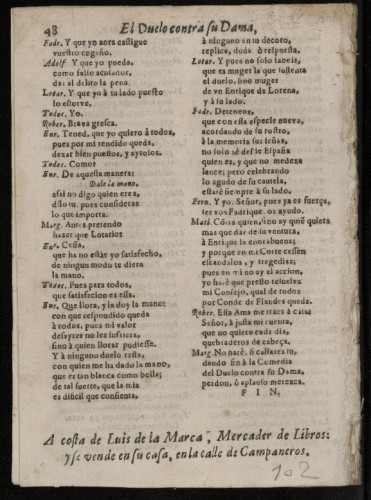 48 El Duelo contra su Dama,
Fadr. Y que yo aora castigue
vuestro engaño.
Adolf. Y que yo pueda,
como fallo acusador,
dar al delito la pena.
Lotar. Y que yo à tu lado puesto
lo estorve.
Todos. Yo.
Rober. Brava gresca.
Enr. Tened, que yo quiero à todos,
pues por mi rendido queda,
dexar bien puestos, y ayrosos.
Todos. Como?
Enr. De aquesta manera:
Dale la mano,
assi no digo quien eres,
dilo tu, pues consideras
lo que importa.
Marg. Antes pretendo
hazer que Lotario:
Enr. Cessa,
que ha no estàr yo satisfecho,
de ningun modo te diera
la mano.
Todos. Pues para todos,
que satisfacion es essa.
Enr. Que llora, y la doy la mano:
con que respondido queda
à todos, pues mi valor
desayre no les sufriera,
sino à quien llorar pudiesse.
Y à ninguno duelo resta,
con quien me ha dado la mano,
que es tan blanca como bella;
de tal suerte, que la mia
es dificil que consienta,
à ninguno en su decoro,
replica, duda ò respuesta.
Lotar. Y pues no solo sabeis,
que es muger la que sustenta
el duelo, sino muger
de vn Enrique de Lorena,
y à su lado.
Fadr. Deteneos,
que con essa especie nueva,
acordando de su rostro,
à la memoria sus señas,
no solo sè desde España
quien es, y que no merezca
lance; pero celebrando
lo agudo de su cautela,
estarè siempre à su lado.
Fern. Y yo, Señor; pues ya es fuerça,
ser vos Fadrique, os ayudo.
Mati. Cõtra quien, si no ay quiẽ quiera
mas que dar de su ventura,
à Enrique la enorabuena;
y porque en mi Corte cessen
escandalos, y tragedias;
pues en mi no ay eleccion,
yo harè que presto resuelva
mi Consejo, qual de todos
por Conde de Flandes queda.
Rober. Essa Ama me traxs à casa
Señor, à justa mi cuenta,
que no quiero cada dia,
quebraderos de cabeça.
Marg. No harè, si callares tu,
dando fin à la Comedia
del Duelo contra su Dama,
perdon, ò aplauso merezca.
FIN.
A costa de Luis de la Marca, Mercader de Libros:
y se vende en su casa, en la calle de Campaneros.
102